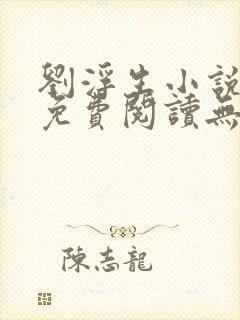 劉浮生小說
免費閱讀無
陳志龍